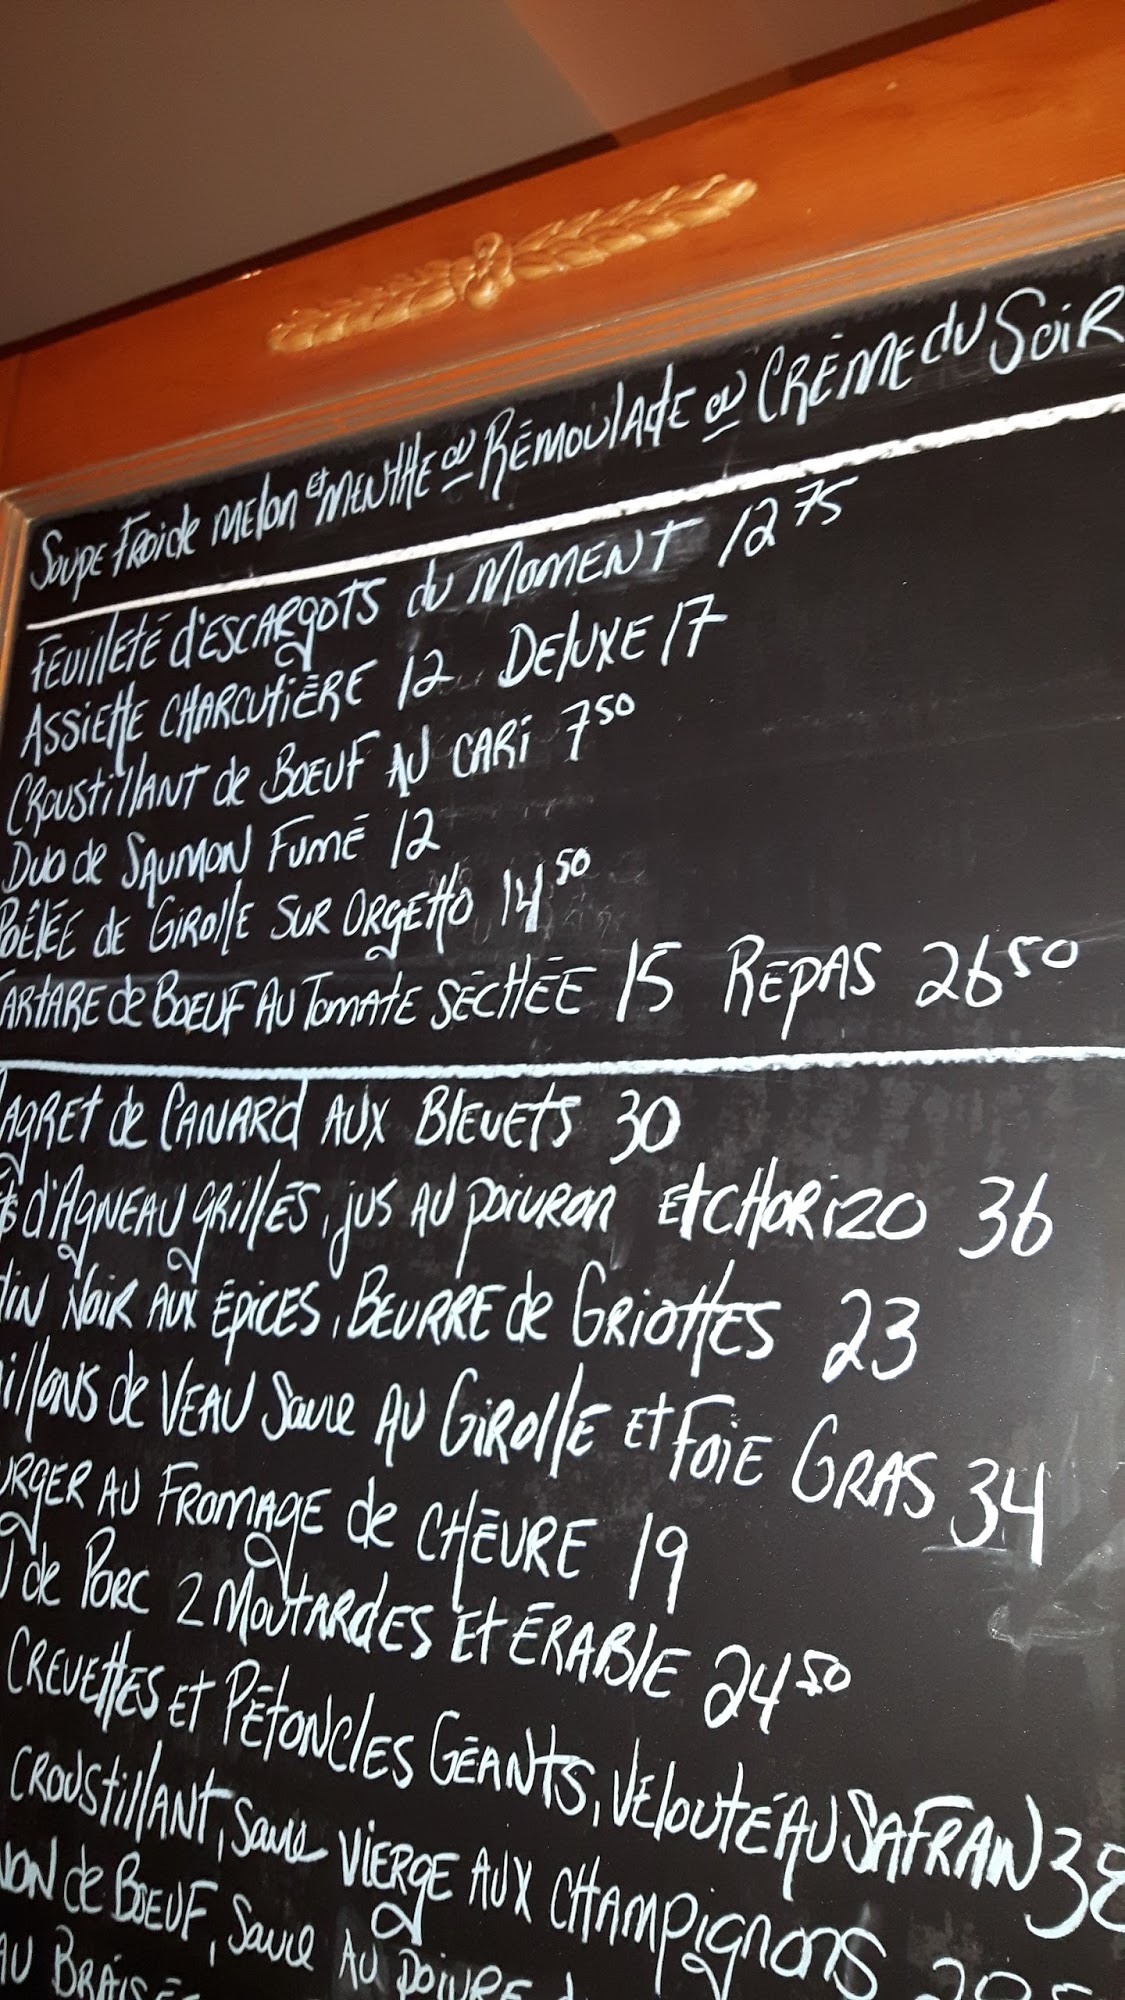 Soupe Froide Melon et Menthe ou Rémoulade ou Crème du Soir
Feuilleté d'Escargots du Moment 12 75
Assiette Charcutière 12 Deluxe 17
Croustillant de Boeuf au Cari 7 50
Duo de Saumon Fumé 12
Poêlée de Girolle sur Orgetto 14 50
artare de Boeuf au Tomate Séchée 15 Repas 26 50
agret de Canard aux Bleuets 30
d'Agneau grillés, jus au poivron et Chorizo 36
din Noir aux Épices, Beurre de Griottes 23
illons de Veau Sauce au Girolle et Foie Gras 34
urger au Fromage de Chèvre 19
de Porc 2 Moutardes et Érable 24 50
Crevettes et Pétoncles Géants, Velouté au Safran 38
Croustillant, Sauce Vierge aux Champignons
non de Boeuf, Sauce au Poivre
au Braisé